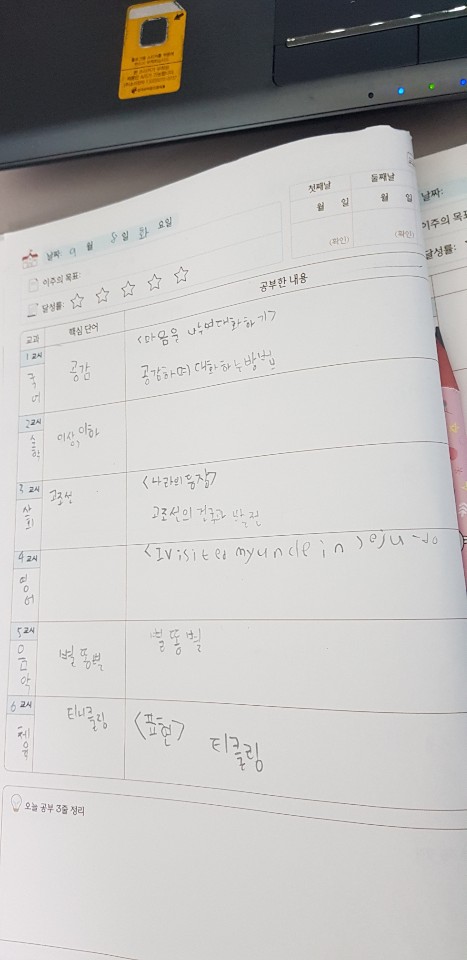 첫째날
둘째날
월 일
월 일
(확인)
(확인)
날짜: 9 월 8 일 화 요일
이주의 목표:
달성률:
날짜:
이주의 목표
달성률:
교과
핵심 단어
공부한 내용
1 교시
국어
공감
<마음을 나누며 대화하기>
공감하며 대화하는 방법
2 교시
수학
이상, 이하
3 교시
사회
고조선
<나라의 등장>
고조선의 건국과 발전
4 교시
영어
<I visited my uncle in Jeju-do
5 교시
음악
별똥별
별똥별
6 교시
체육
티니클링
<표현>
티클링
오늘 공부 3줄 정리